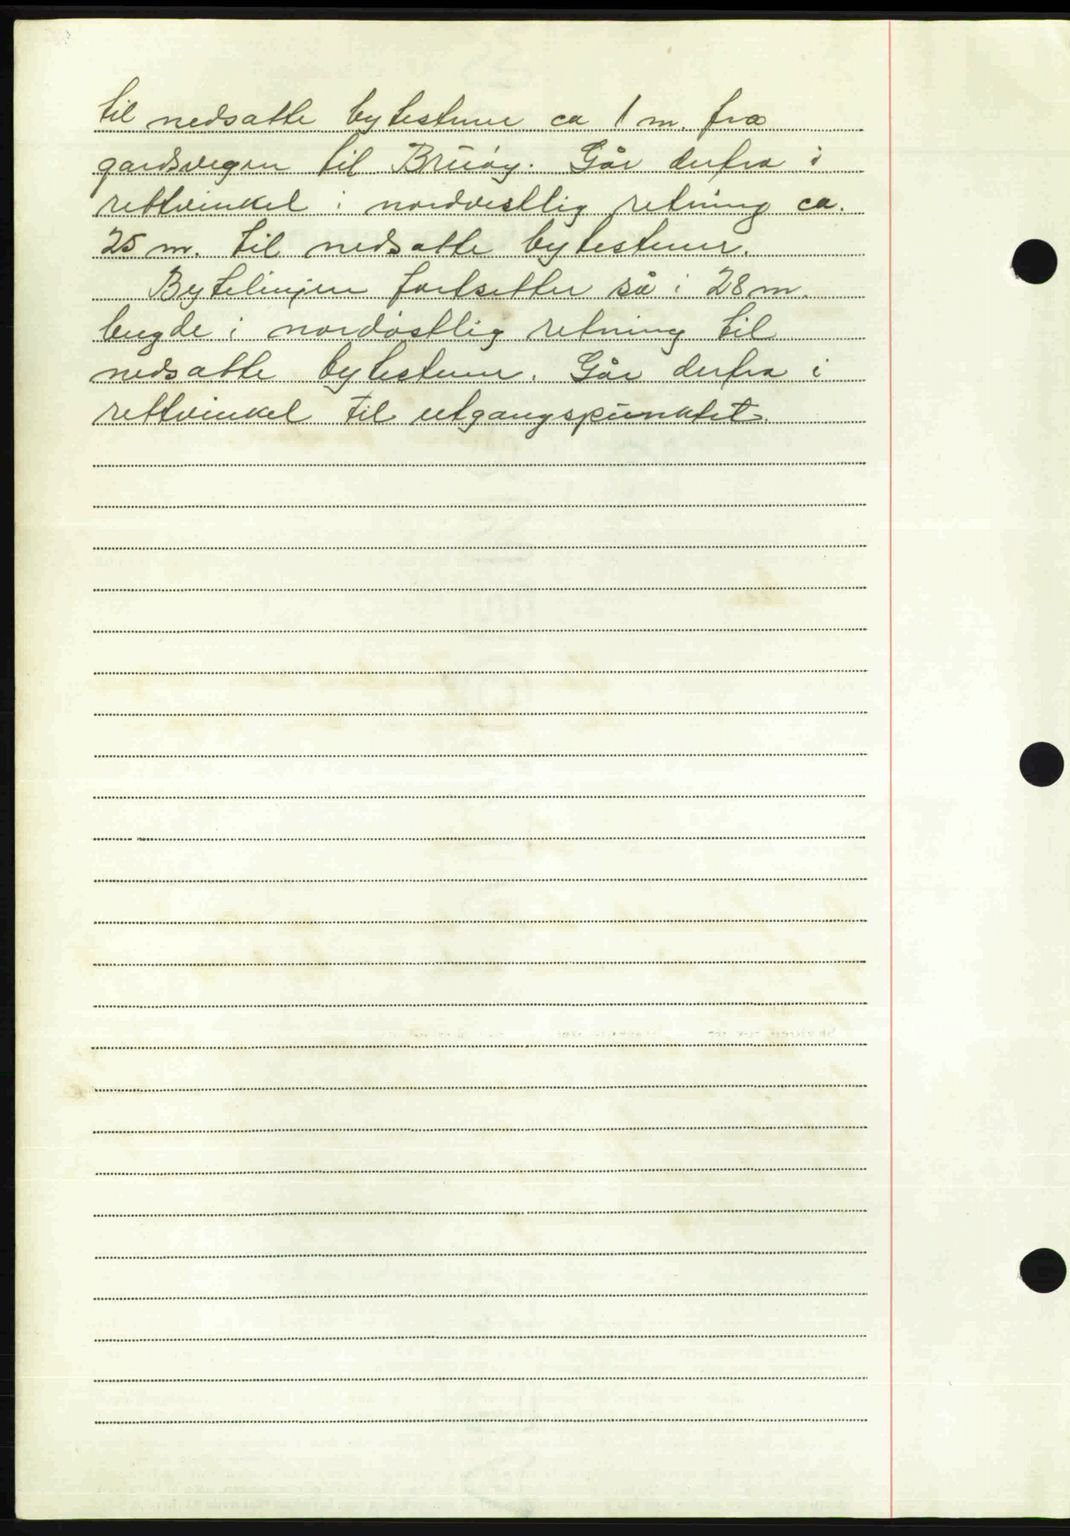 til nedsatte bytesteiner ca 1 m. fra
gardsvegen til Bruøy. Går derfra i
rettvinkel i nordvestlig retning ca.
25 m. til nedsatte bytesteiner.
Bytelinjen fortsetter så i 28 m.
lengde i nordøstlig retning til
nedsatte bytesteiner. Går derfra i
rettvinkel til utgangspunktet.